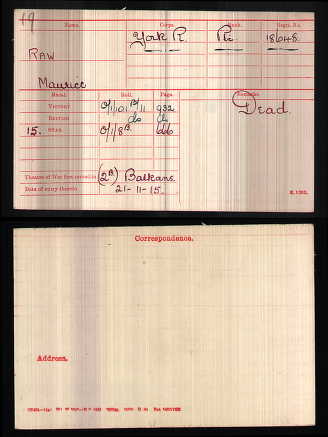 19
Name. Corps. Rank. Regtl. No.
RAW York R. Pte 18648
Maurice
Medal. Roll. Page. Remarks.
VICTORY O/1/101 B11 932 Dead.
BRITISH do do
15. STAR O/1/8B. dd
Theatre of War first served in (2B) Balkans.
Date of entry therein 21-11-15.
K. 1380.
Correspondence.
Address.